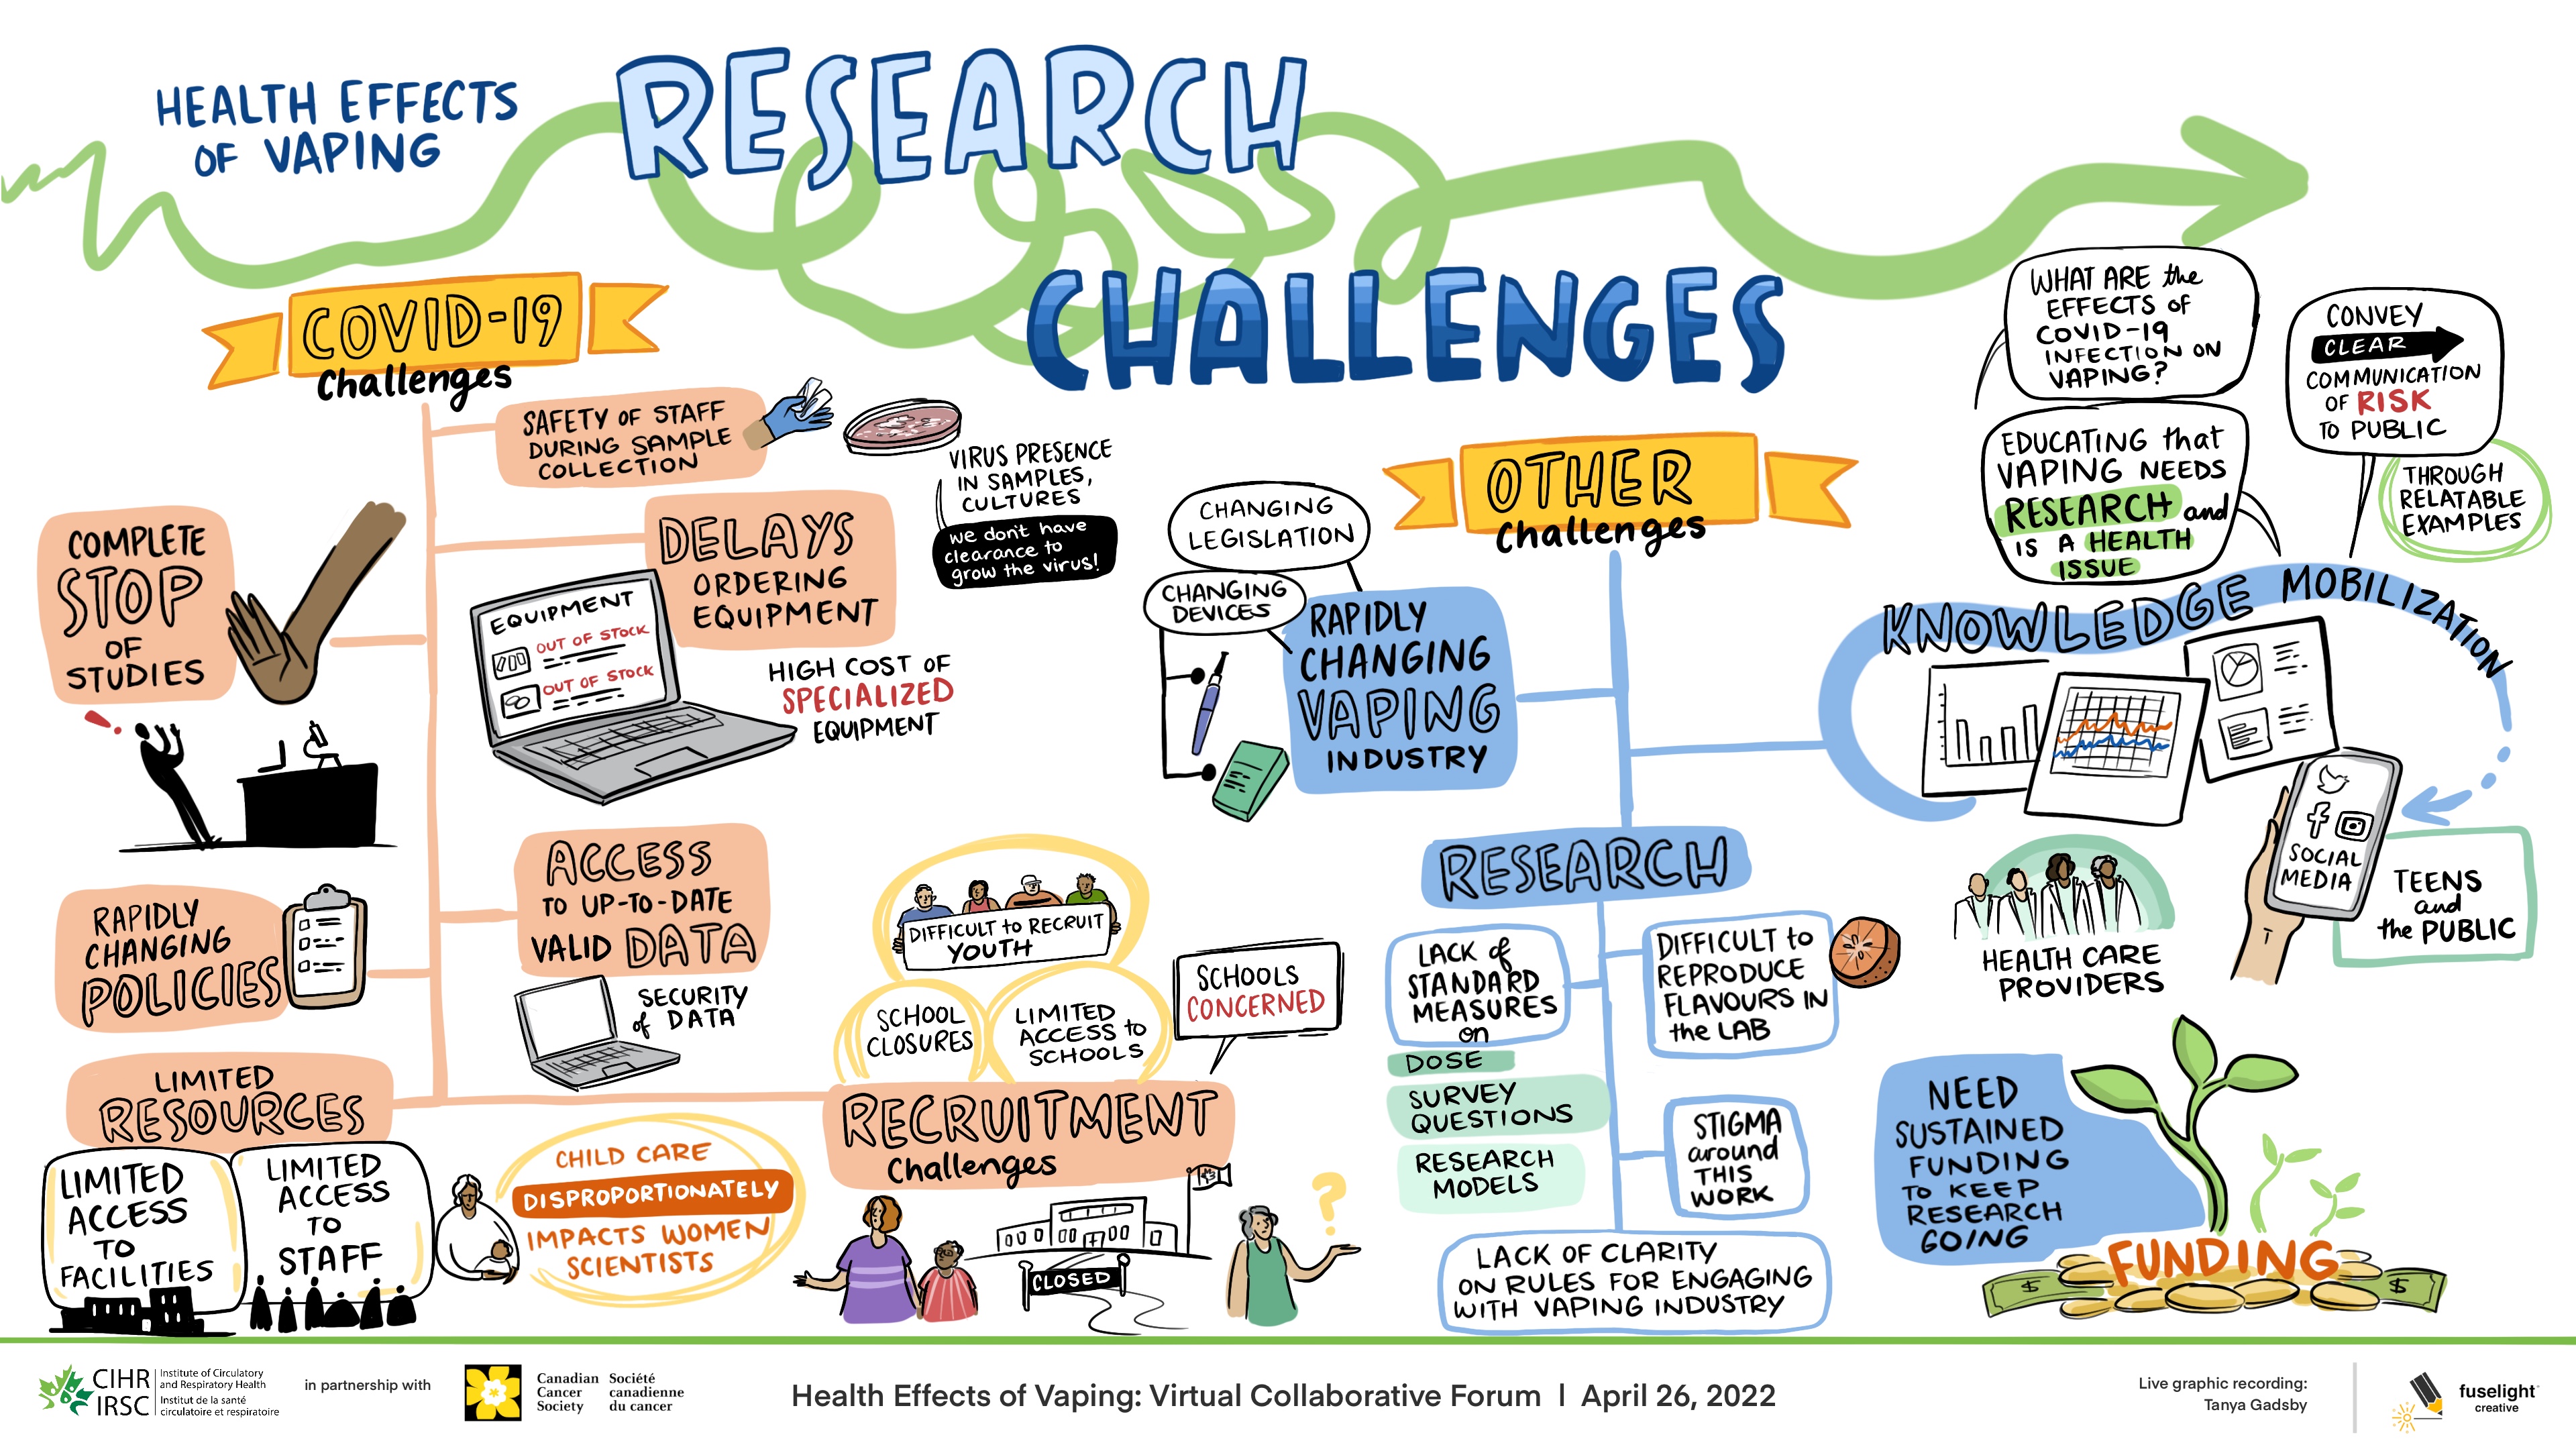 HEALTH EFFECTS
OF VAPING
RESEARCH
CHALLENGES
COVID-19
Challenges
SAFETY OF STAFF
DURING SAMPLE
COLLECTION
VIRUS PRESENCE
IN SAMPLES,
CULTURES
we don't have
clearance to
grow the virus!
COMPLETE
STOP
OF
STUDIES
!
DELAYS
ORDERING
EQUIPMENT
EQUIPMENT
OUT OF STOCK
OUT OF STOCK
HIGH COST OF
SPECIALIZED
EQUIPMENT
RAPIDLY
CHANGING
POLICIES
ACCESS
TO UP-TO-DATE
VALID DATA
SECURITY
of DATA
LIMITED
RESOURCES
LIMITED
ACCESS
TO
FACILITIES
LIMITED
ACCESS
TO
STAFF
CHILD CARE
DISPROPORTIONATELY
IMPACTS WOMEN
SCIENTISTS
DIFFICULT to RECRUIT
YOUTH
SCHOOL
CLOSURES
LIMITED
ACCESS to
SCHOOLS
SCHOOLS
CONCERNED
RECRUITMENT
Challenges
CLOSED
?
OTHER
Challenges
CHANGING
LEGISLATION
CHANGING
DEVICES
RAPIDLY
CHANGING
VAPING
INDUSTRY
RESEARCH
LACK of
STANDARD
MEASURES
on
DOSE
SURVEY
QUESTIONS
RESEARCH
MODELS
DIFFICULT to
REPRODUCE
FLAVOURS IN
the LAB
STIGMA
around
THIS
WORK
LACK OF CLARITY
ON RULES FOR ENGAGING
WITH VAPING INDUSTRY
WHAT ARE the
EFFECTS of
COVID-19
INFECTION ON
VAPING?
EDUCATING that
VAPING NEEDS
RESEARCH and
IS A HEALTH
ISSUE
CONVEY
CLEAR
COMMUNICATION
OF RISK
TO PUBLIC
THROUGH
RELATABLE
EXAMPLES
KNOWLEDGE MOBILIZATION
SOCIAL
MEDIA
TEENS
and
the PUBLIC
HEALTH CARE
PROVIDERS
NEED
SUSTAINED
FUNDING
TO KEEP
RESEARCH
GOING
FUNDING
$
$
CIHR
IRSC
Institute of Circulatory
and Respiratory Health
Institut de la santé
circulatoire et respiratoire
in partnership with
Canadian
Cancer
Society
Société
canadienne
du cancer
Health Effects of Vaping: Virtual Collaborative Forum | April 26, 2022
Live graphic recording:
Tanya Gadsby
fuselight
creative